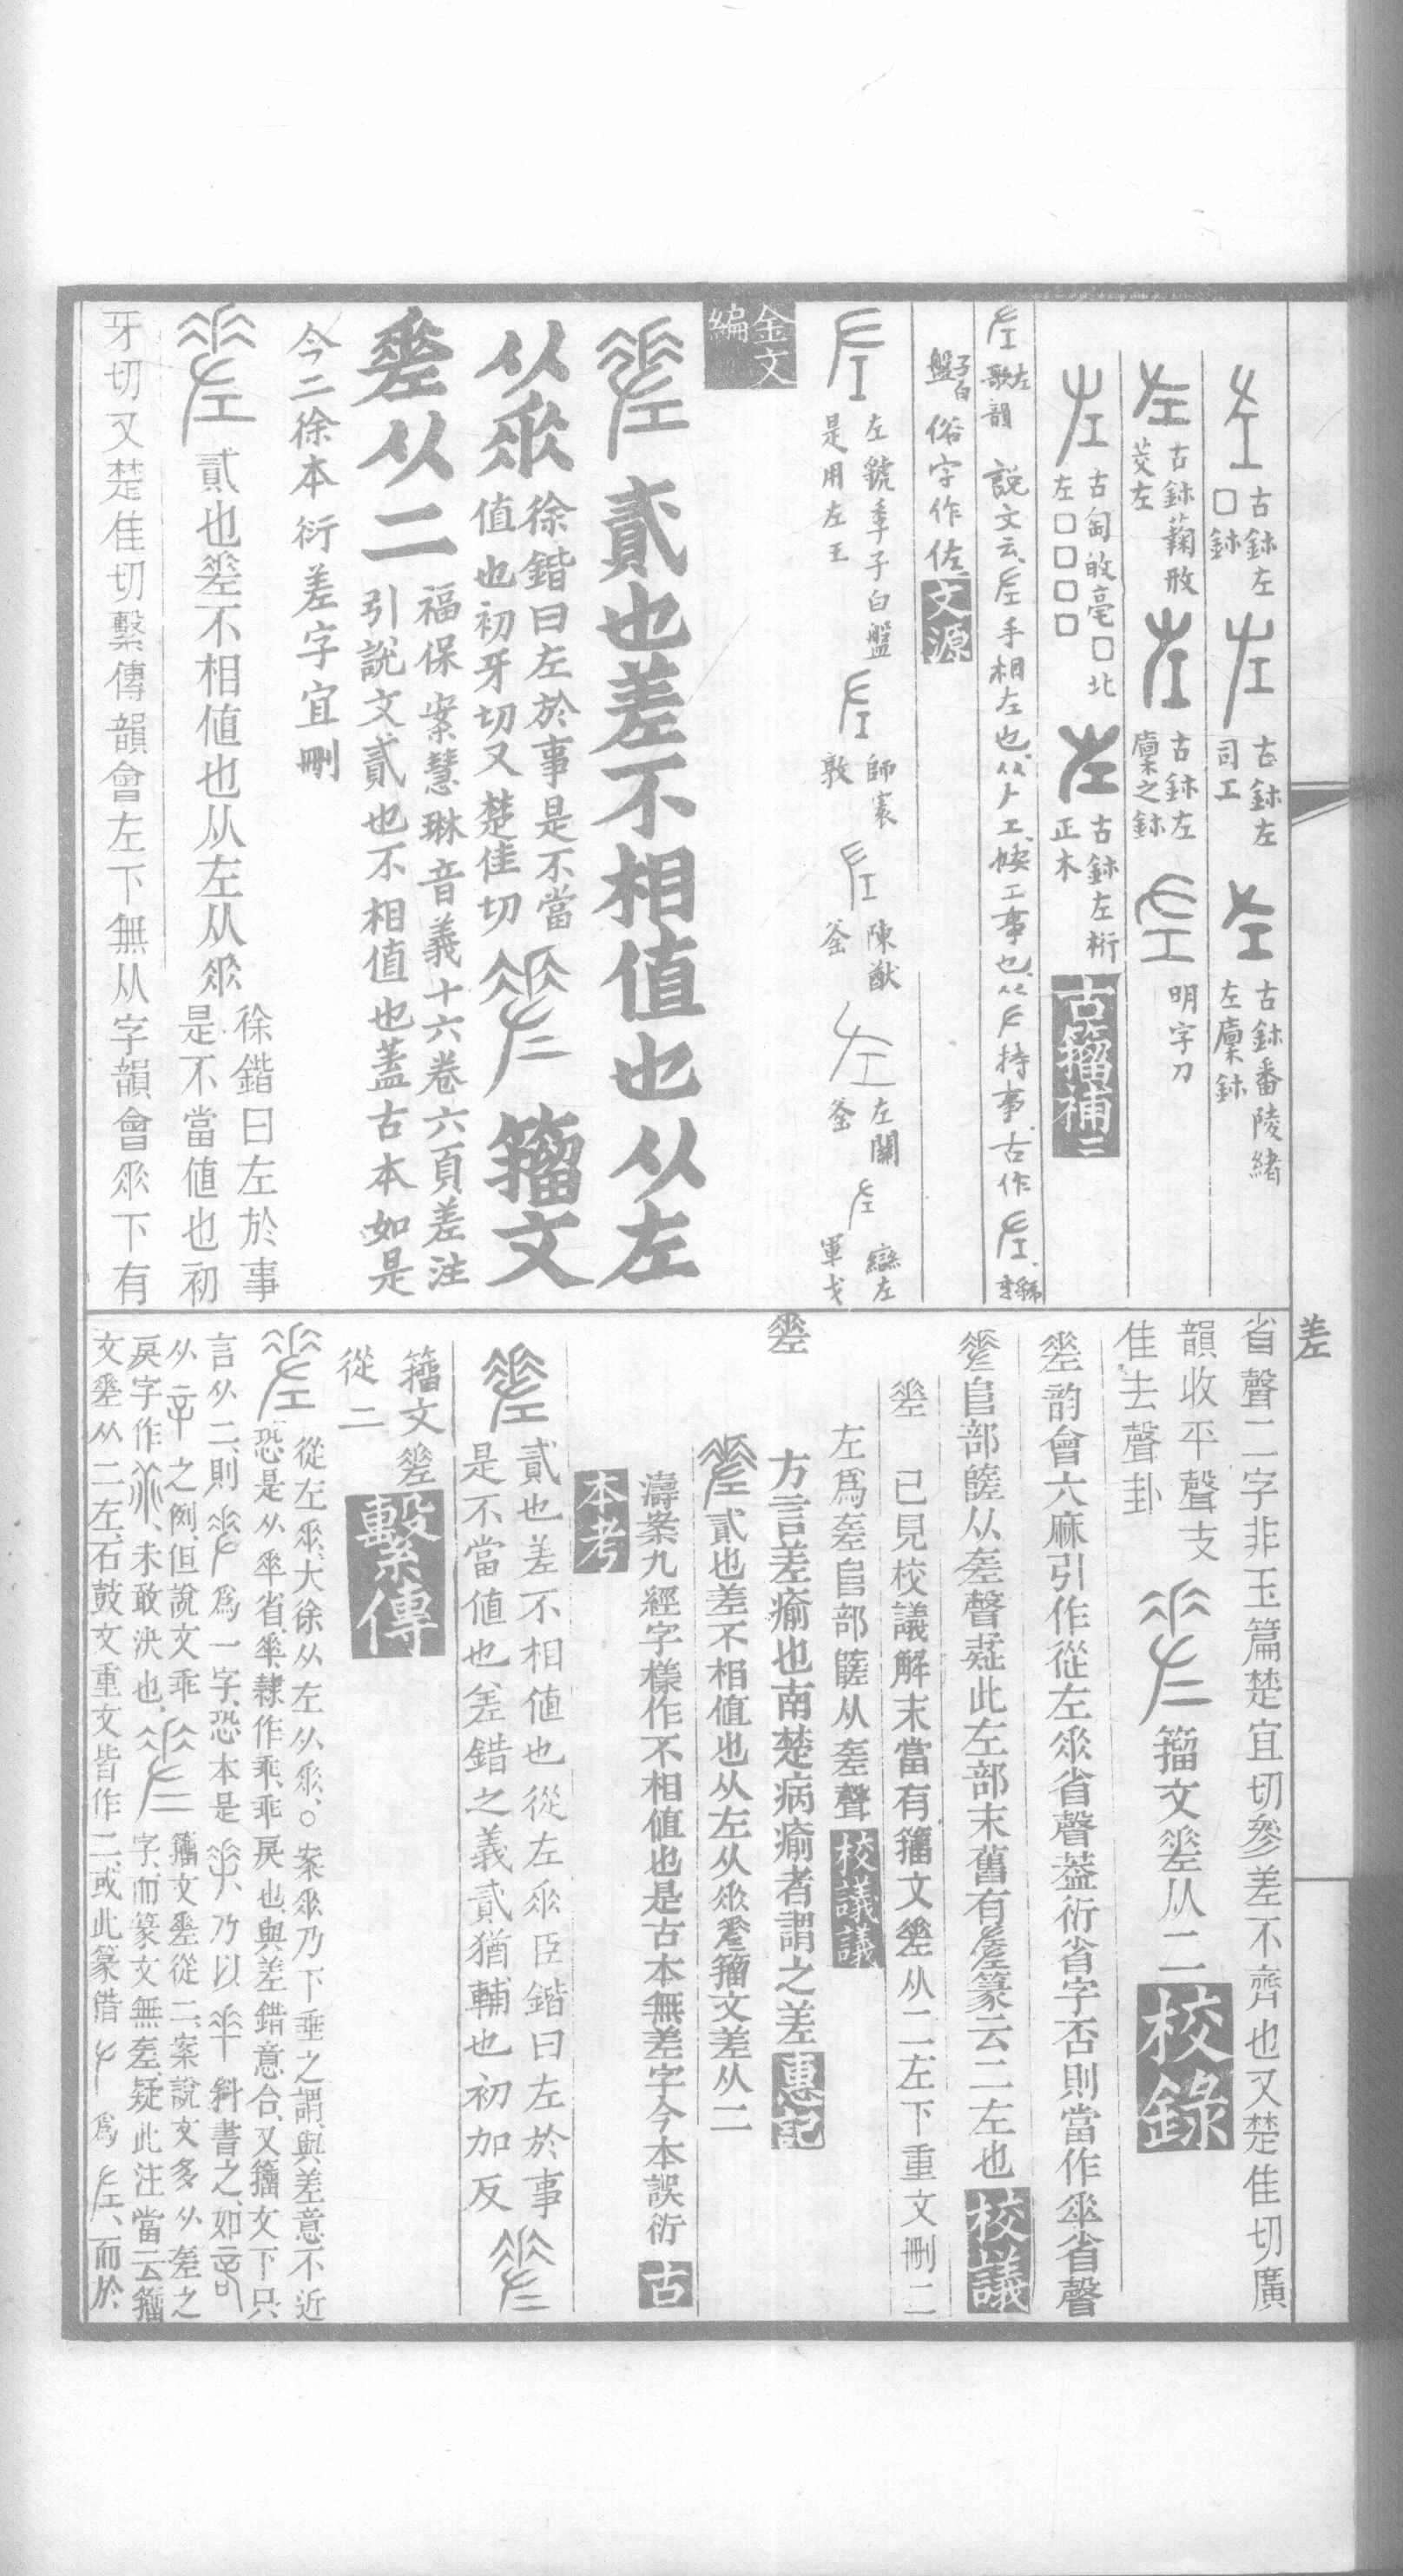 差
古鉨左
□鉨
古鉨左
司工
古鉨番陵緒
左廩鉨
古鉨蘜㪔
茭左
古鉨左
廩之鉨
明字刀
古匋㪔亳□北
左□□□□
古鉨左桁
正木
古籀補二
左
歌韻
說文云𠂇手相左也从𠂇工按工事也从𠂇持事古作
虢季
子白
盤
俗字作佐
文源
左虢季子白盤
是用左王
師㝨
敦
陳猷
釜
左關
釜
䜌左
軍戈
金文
編
貳也差不相值也从左
从𠂹
徐鍇曰左於事是不當
值也初牙切又楚佳切
籀文
𢀩从二
福保案慧琳音義十六卷六頁差注
引說文貳也不相值也蓋古本如是
今二徐本衍差字宜刪
貳也𢀩不相値也从左从𠂹
徐鍇曰左於事
是不當値也初
牙切又楚佳切繫傳韻會左下無从字韻會𠂹下有
省聲二字非玉篇楚宜切參差不齊也又楚佳切廣
韻收平聲支
佳去聲卦
籀文𢀩从二
校錄
𢀩韵會六麻引作從左𠂹省聲葢衍省字否則當作𠌶省聲
𨸏部𨽶从𢀩聲疑此左部末舊有篆云二左也
校議
𢀩
已見校議解末當有籀文𢀩从二左下重文刪二
左爲𢀩𨸏部𨽶从𢀩聲
校議議
𢀩
方言差瘉也南楚病瘉者謂之差
惠記
貳也差不相值也从左从𠂹籀文差从二
濤案九經字樣作不相值也是古本無差字今本誤衍
古
本考
貳也差不相值也從左𠂹臣鍇曰左於事
是不當值也差錯之義貳猶輔也初加反
籀文𢀩
從二
繫傳
從左𠂹大徐从左从𠂹○案𠂹乃下垂之謂與差意不近
恐是从𠌶省𠌶隸作乖乖戾也與差錯意合又籀文下只
言从二則爲一字恐本是乃以斜書之如
从之例但說文乖籀文𢀩從二案說文多从差之
戾字作未敢決也字而篆文無差疑此注當云籀
文𢀩从二左石鼓文重文皆作二或此篆借爲而於